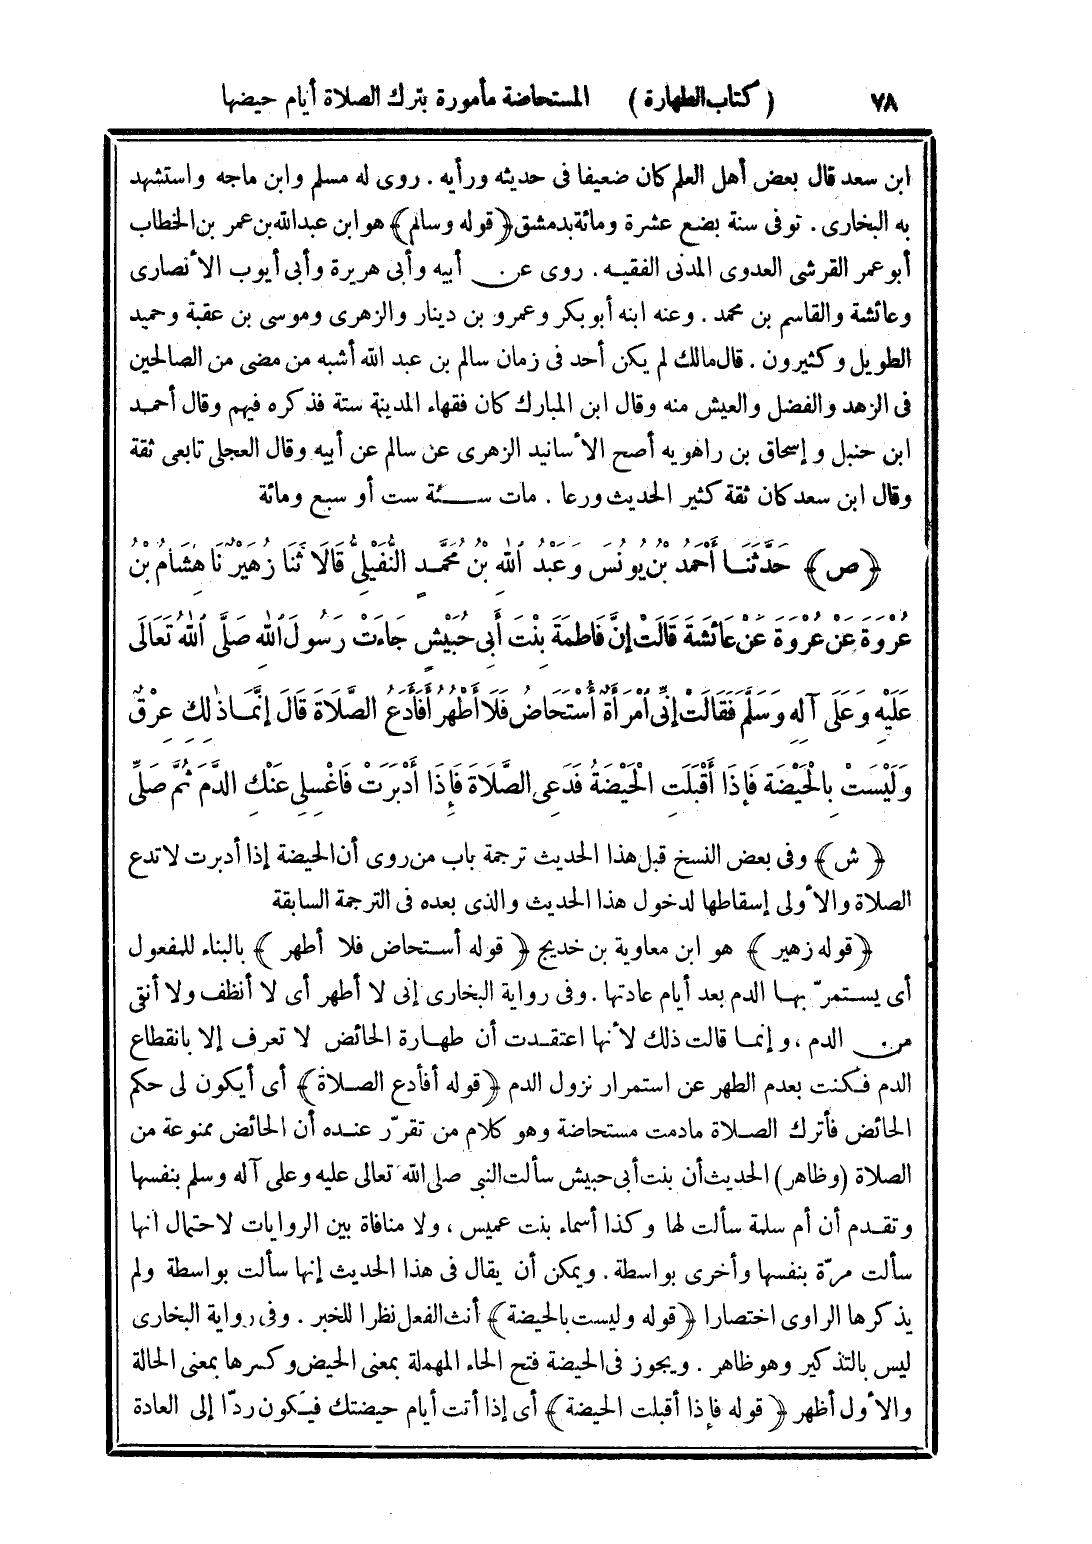 ٧٨ (كتاب الطهارة) المستحاضة مأمورة بترك الصلاة أيام حيضها
ابن سعد قال بعض أهل العلم كان ضعيفا فى حديثه ورأيه . روى له مسلم وابن ماجه واستشهد
به البخارى . توفى سنة بضع عشرة ومائة بدمشق ﴿قوله وسالم﴾ هو ابن عبدالله بن عمر بن الخطاب
أبو عمر القرشى العدوى المدنى الفقيه . روى عن أبيه وأبى هريرة وأبى أيوب الأنصارى
وعائشة والقاسم بن محمد . وعنه ابنه أبو بكر وعمرو بن دينار والزهرى وموسى بن عقبة وحميد
الطويل وكثيرون . قال مالك لم يكن أحد فى زمان سالم بن عبد الله أشبه من مضى من الصالحين
فى الزهد والفضل والعيش منه وقال ابن المبارك كان فقهاء المدينة ستة فذكره فيهم وقال أحمد
ابن حنبل وإسحاق بن راهويه أصح الأسانيد الزهرى عن سالم عن أبيه وقال العجلى تابعى ثقة
وقال ابن سعد كان ثقة كثير الحديث ورعا . مات سنة ست أو سبع ومائة
﴿ص﴾ حَدَّثَنَا أَحْمَدُ بْنُ يُونُسَ وَعَبْدُ اللهِ بْنُ مُحَمَّدٍ النُّفَيْلِىُّ قَالَا ثَنَا زُهَيْرٌ نَا هِشَامُ بْنُ
عُرْوَةَ عَنْ عُرْوَةَ عَنْ عَائِشَةَ قَالَتْ إِنَّ فَاطِمَةَ بِنْتَ أَبِى حُبَيْشٍ جَاءَتْ رَسُولَ اللهِ صَلَّى اللهُ تَعَالَى
عَلَيْهِ وَعَلَى آلِهِ وَسَلَّمَ فَقَالَتْ إِنِّى امْرَأَةٌ أُسْتَحَاضُ فَلَا أَطْهُرُ أَفَأَدَعُ الصَّلَاةَ قَالَ إِنَّمَا ذٰلِكِ عِرْقٌ
وَلَيْسَتْ بِالْحَيْضَةِ فَإِذَا أَقْبَلَتِ الْحَيْضَةُ فَدَعِى الصَّلَاةَ فَإِذَا أَدْبَرَتْ فَاغْسِلِى عَنْكِ الدَّمَ ثُمَّ صَلِّى
﴿ش﴾ وفى بعض النسخ قبل هذا الحديث ترجمة باب من روى أن الحيضة إذا أدبرت لاتدع
الصلاة والأولى إسقاطها لدخول هذا الحديث والذى بعده فى الترجمة السابقة
﴿قوله زهير﴾ هو ابن معاوية بن خديج ﴿قوله أستحاض فلا أطهر﴾ بالبناء للمفعول
أى يستمرّ بها الدم بعد أيام عادتها . وفى رواية البخارى إنى لا أطهر أى لا أنظف ولا أنقى
من الدم ، وإنما قالت ذلك لأنها اعتقدت أن طهارة الحائض لا تعرف إلا بانقطاع
الدم فكنت بعدم الطهر عن استمرار نزول الدم ﴿قوله أفأدع الصلاة﴾ أى أيكون لى حكم
الحائض فأترك الصلاة مادمت مستحاضة وهو كلام من تقرّر عنده أن الحائض ممنوعة من
الصلاة (وظاهر) الحديث أن بنت أبى حبيش سألت النبى صلى الله تعالى عليه وعلى آله وسلم بنفسها
وتقدم أن أم سلمة سألت لها وكذا أسماء بنت عميس ، ولا منافاة بين الروايات لاحتمال انها
سألت مرّة بنفسها وأخرى بواسطة . ويمكن أن يقال فى هذا الحديث إنها سألت بواسطة ولم
يذكرها الراوى اختصارا ﴿قوله وليست بالحيضة﴾ أنث الفعل نظرا للخبر . وفى رواية البخارى
ليس بالتذكير وهو ظاهر . ويجوز فى الحيضة فتح الحاء المهملة بمعنى الحيض وكسرها بمعنى الحالة
والأول أظهر ﴿قوله فإذا أقبلت الحيضة﴾ أى إذا أتت أيام حيضتك فيكون ردّا إلى العادة